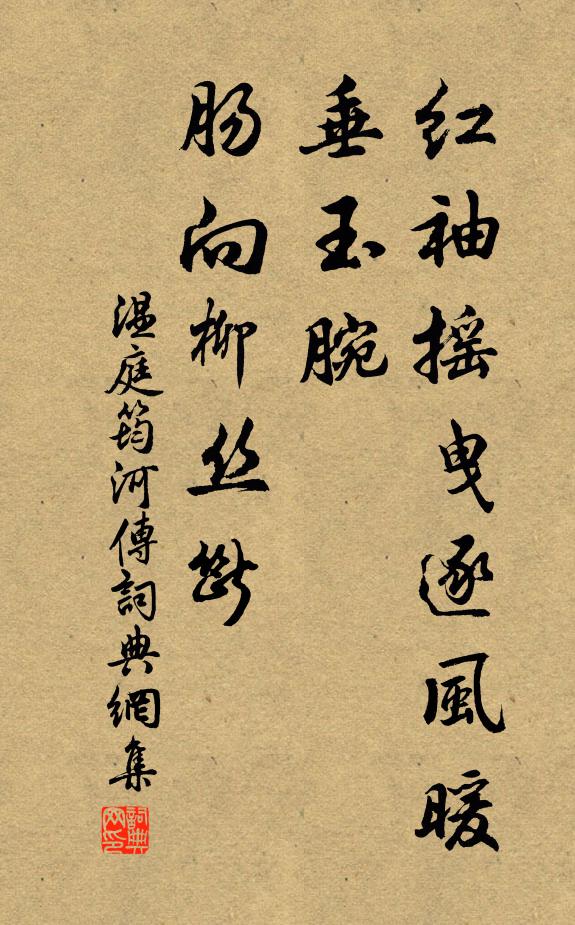 红袖摇曳逐風暖
垂玉腕
肠向柳丝斷
温庭筠河傳詞典網集
詞典網印